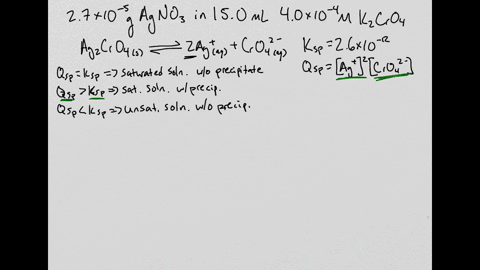 2.7×10⁻⁵ g AgNO₃ in 15.0 mL 4.0×10⁻⁴ M K₂CrO₄
Ag₂CrO₄(s) ⇌ 2Ag⁺(aq) + CrO₄²⁻(aq) Ksp = 2.6×10⁻¹²
Qsp = Ksp => saturated soln. w/o precipitate Qsp = [Ag⁺]²[CrO₄²⁻]
Qsp > Ksp => sat. soln. w/ precip.
Qsp < Ksp => unsat. soln w/o precip.